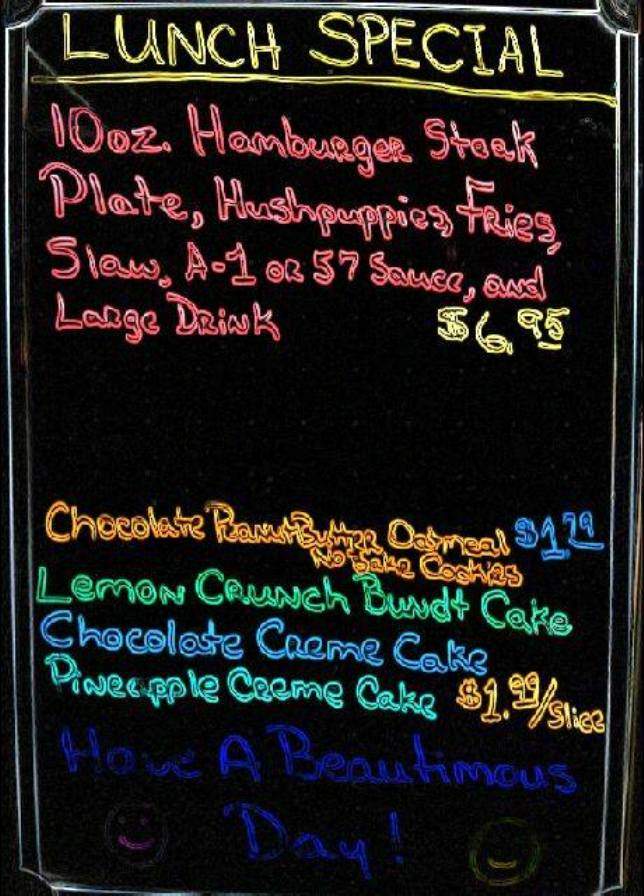 LUNCH SPECIAL
10oz. Hamburger Steak
Plate, Hushpuppies, Fries,
Slaw, A-1 or 57 Sauce, and
Large Drink $6.95
Chocolate Peanut Butter Oatmeal $1.79
No Bake Cookies
Lemon Crunch Bundt Cake
Chocolate Creme Cake
Pineapple Creme Cake $1.99/Slice
Have A Beautimous
Day!